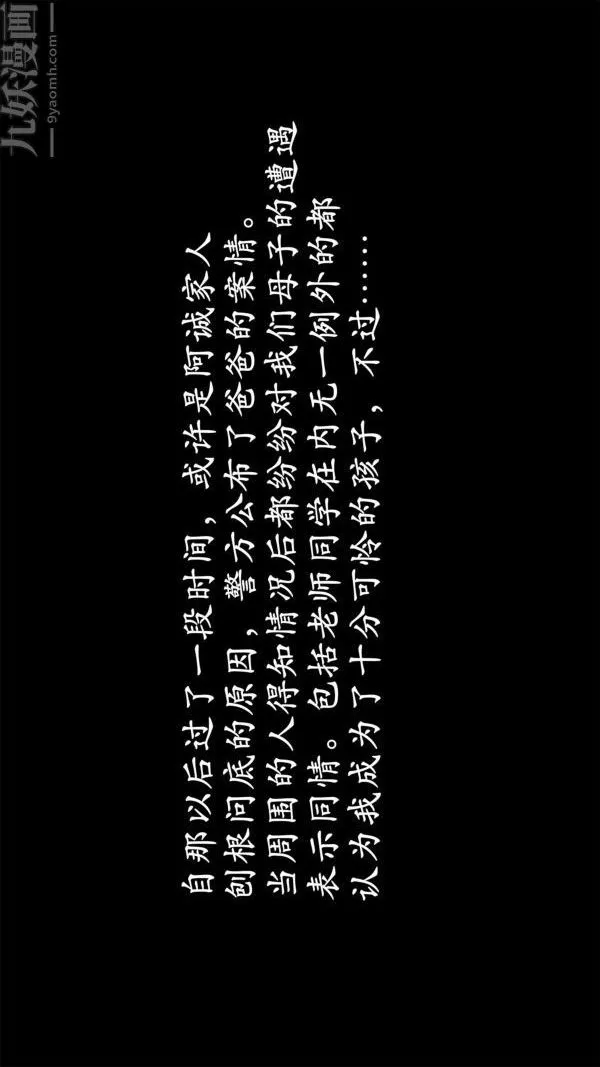 九妖漫画
9yaomh.com
自那以后过了一段时间，或许是阿诚家人
刨根问底的原因，警方公布了爸爸的案情。
当周围的人得知情况后都纷纷对我们母子的遭遇
表示同情。包括老师同学在内无一例外的都
认为我成为了十分可怜的孩子，不过……